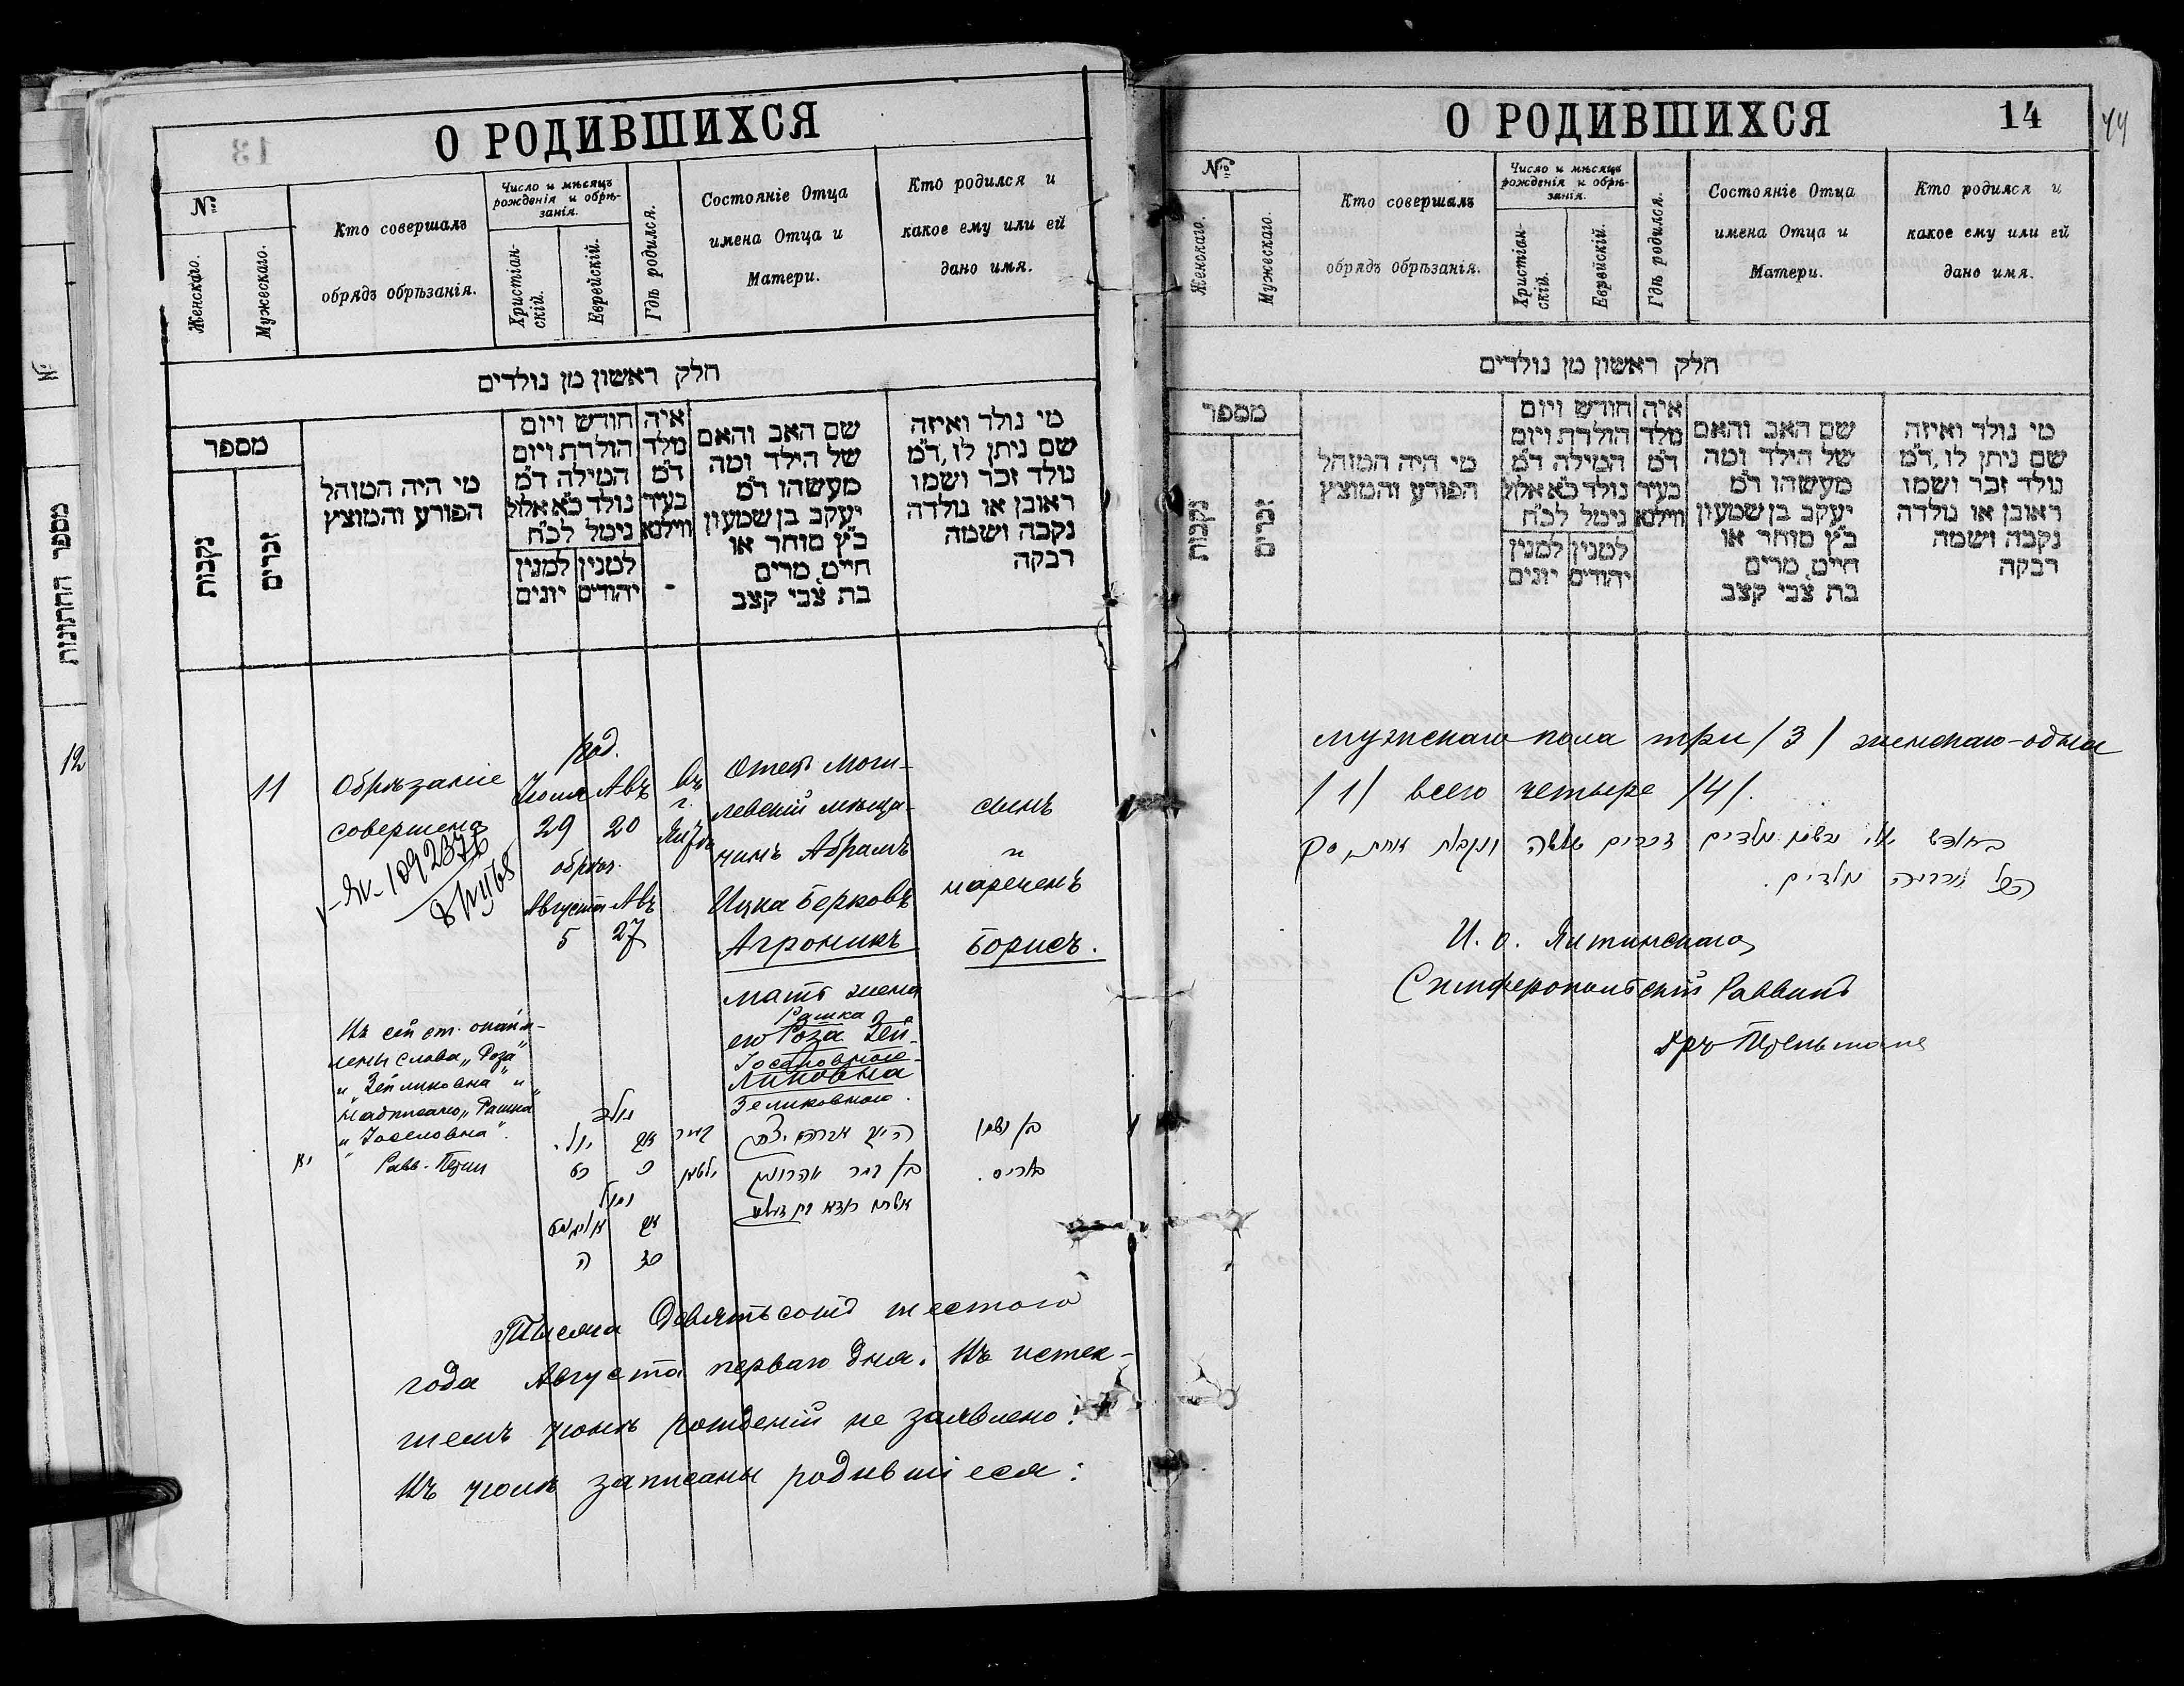 О РОДИВШИХСЯ
№
Женскаго.
Мужескаго.
Кто совершалъ
обрядъ обрѣзанія.
Число и мѣсяцъ
рожденія и обрѣ-
занія.
Христіан-
скій.
Еврейскій.
Гдѣ родился.
Состояніе Отца
имена Отца и
Матери.
Кто родился и
какое ему или ей
дано имя.
חלק ראשון מן נולדים
מספר
נקבות
זכרים
מי היה המוהל
הפורע והמוצץ
חודש ויום
הולדת ויום
המילה ד״מ
נולד כ״א אלול
נימל לכ״ח
למנין יהודים
למנין יונים
איה
מלד
ד״מ
בעיר
ווילנא
שם האב והאם
של הילד ומה
מעשהו ד״מ
יעקב בן שמעון
כ״ץ סוחר או
חייט, מרים
בת צבי קצב
מי נולד ואיזה
שם ניתן לו, ד״מ
נולד זכר ושמו
ראובן או נולדה
נקבה ושמה
רבקה
מספר החתונות
12
11
Обрѣзаніе
совершено
род.
Іюля Авъ
29 20
обрѣз.
Августа Авъ
5 27
въ
г.
Отецъ Моги-
левскій мѣща-
нинъ Абрамъ
Ицка Берковъ
Агроникъ
мать жена
Рашка
его Роза Зей-
Іоселовною
ликовна
Зеликовною.
сынъ
и
нареченъ
Борисъ.
Въ сей ст.
слова „Роза“
и „Зейликовна“ и
надписано „Рашка“
и „Іоселовна“.
Равв.
יא
נולד
אב יולי
כ כט
נימול
אב אויגוסט
כז ה
בן ושמו
באריס.
Тысяча девятьсотъ шестого
года Августа перваго дня. Въ истек-
шемъ іюнѣ рожденій не заявлено.
Въ іюлѣ записаны родившіеся:
О РОДИВШИХСЯ
14
44
№
Женскаго.
Мужескаго.
Кто совершалъ
обрядъ обрѣзанія.
Число и мѣсяцъ
рожденія и обрѣ-
занія.
Христіан-
скій.
Еврейскій.
Гдѣ родился.
Состояніе Отца
имена Отца и
Матери.
Кто родился и
какое ему или ей
дано имя.
חלק ראשון מן נולדים
מספר
נקבות
זכרים
מי היה המוהל
הפורע והמוצץ
חודש ויום
הולדת ויום
המילה ד״מ
נולד כ״א אלול
נימל לכ״ח
למנין יהודים
למנין יונים
איה
מלד
ד״מ
בעיר
ווילנא
שם האב והאם
של הילד ומה
מעשהו ד״מ
יעקב בן שמעון
כ״ץ סוחר או
חייט, מרים
בת צבי קצב
מי נולד ואיזה
שם ניתן לו, ד״מ
נולד זכר ושמו
ראובן או נולדה
נקבה ושמה
רבקה
мужскаго пола три /3/ женскаго-одна
/1/ всего четыре /4/.
זכרים שלשה ונקבה אחת, סך
הכל ארבעה ילדים.
И. о. Ялтинскаго
Симферопольскій Раввинъ